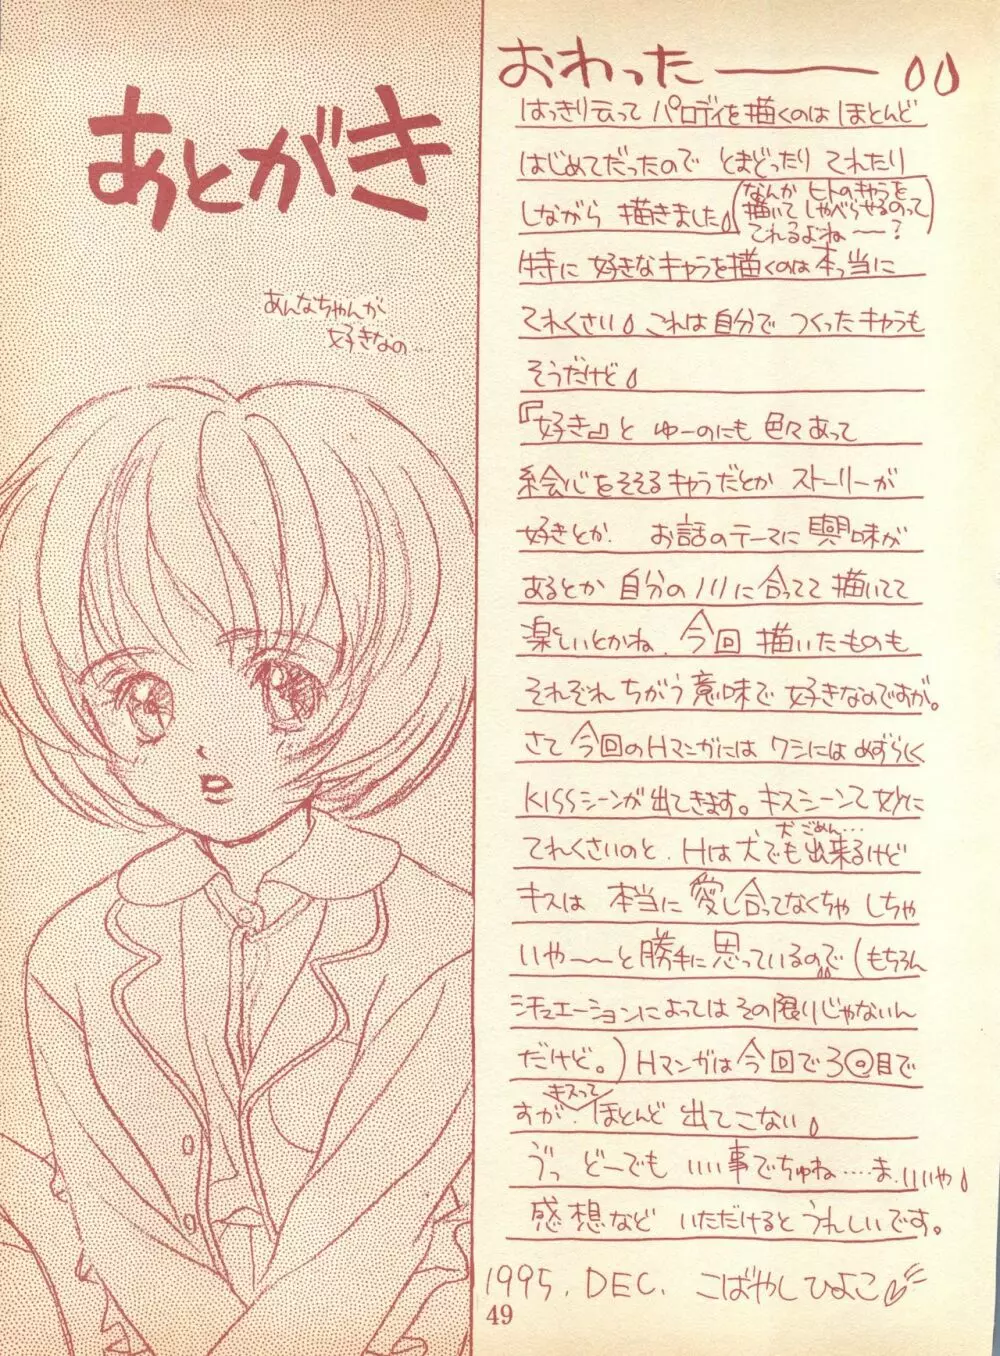 あとがき
あんなちゃんが
好きなの……
おわったー
はっきり云って パロディを描くのは ほとんど
はじめてだったので とまどったり てれたり
しながら 描きました
(なんか ヒトのキャラを
描いて しゃべらせるのって
てれるよね〜?)
特に 好きなキャラを描くのは 本っ当に
てれくさい これは 自分で つくったキャラも
そうだけど
『好き』と ゆーのにも 色々あって
絵心をそそるキャラだとか ストーリーが
好きとか. お話のテーマに 興味が
あるとか 自分のノリに 合ってて 描いてて
楽しいとかね. 今回 描いたものも
それぞれ ちがう 意味で 好きなのですが。
さて 今回のHマンガには ワシには めずらしく
KISSシーンが 出てきます。キスシーンて 妙に
犬 ごめん…
てれくさいのと. Hは 犬でも 出来るけど
キスは 本当に 愛し合ってなくちゃ しちゃ
いや〜〜と 勝手に 思っているので (もちろん
シチュエーションによっては その限りじゃないん
だけど。) Hマンガは 今回で 3回目で
キスって
すが. ほとんど 出てこない
うっ どーでも いい事でちゅね……ま.いいや
感想など いただけると うれしいです。
1995. DEC. こばやしひよこ
49